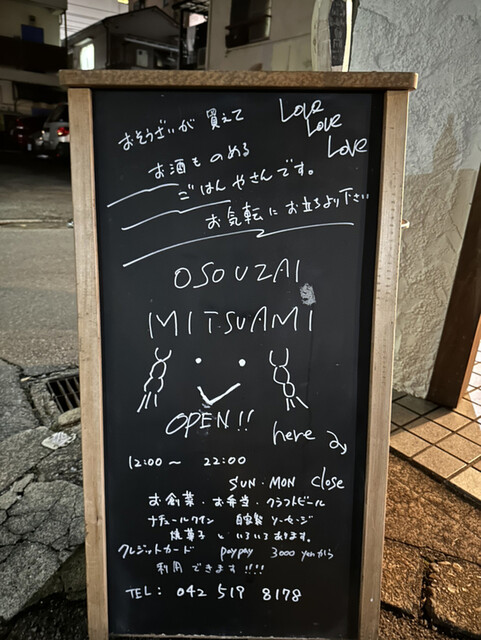 おそうざいが 買えて
Love
Love
Love
お酒ものめる
ごはんやさんです。
お気転にお立ちより下さい
OSOUZAI
MITSUAMI
OPEN!!
here
12:00〜 22:00
SUN・MON close
お惣菜・お弁当・クラフトビール
ナチュールワイン 自家製ソーセージ
焼菓子といろいろあります。
クレジットカード paypay 3000 yenから
利用できます!!!!
TEL: 042 519 8178